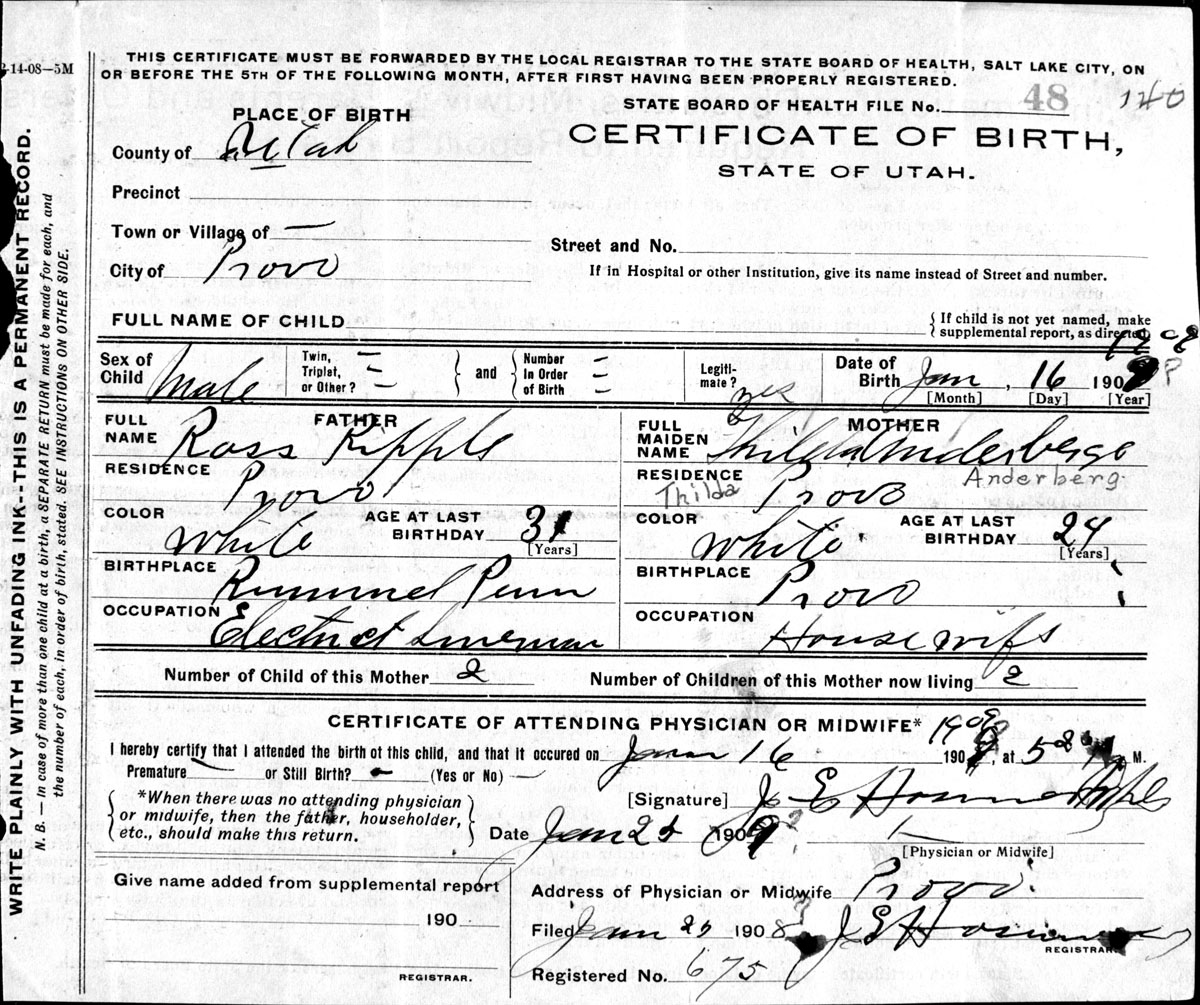 2-14-08—5M
THIS CERTIFICATE MUST BE FORWARDED BY THE LOCAL REGISTRAR TO THE STATE BOARD OF HEALTH, SALT LAKE CITY, ON
OR BEFORE THE 5TH OF THE FOLLOWING MONTH, AFTER FIRST HAVING BEEN PROPERLY REGISTERED.
STATE BOARD OF HEALTH FILE No. 48 140
PLACE OF BIRTH
CERTIFICATE OF BIRTH,
STATE OF UTAH.
County of Utah
Precinct
Town or Village of —
Street and No.
City of Provo
If in Hospital or other Institution, give its name instead of Street and number.
FULL NAME OF CHILD
{ If child is not yet named, make
supplemental report, as directed.
Sex of Child Male
Twin, — Triplet, — or Other? — } and { Number — In Order — of Birth —
Legiti- mate? yes
Date of Birth Jan, 16 190
1909 ?
[Month] [Day] [Year]
FATHER
FULL NAME Ross Ripple
RESIDENCE Provo
COLOR White AGE AT LAST BIRTHDAY 31
[Years]
BIRTHPLACE Rummel Penn
OCCUPATION Electrict Lineman
MOTHER
FULL MAIDEN NAME
RESIDENCE Provo
Thilda Anderberg
COLOR White AGE AT LAST BIRTHDAY 24
[Years]
BIRTHPLACE Provo
OCCUPATION House wife
Number of Child of this Mother 2 Number of Children of this Mother now living 2
CERTIFICATE OF ATTENDING PHYSICIAN OR MIDWIFE*
1909
I hereby certify that I attended the birth of this child, and that it occured on Jan 16 190 , at 5 M.
Premature — or Still Birth? — (Yes or No) —
{ *When there was no attending physician
or midwife, then the father, householder,
etc., should make this return. }
[Signature] J. E.
Date Jan 190 9 ?
[Physician or Midwife]
Give name added from supplemental report
190
REGISTRAR.
Address of Physician or Midwife Provo.
Filed Jan 190 8 ? J E
REGISTRAR
Registered No. 675
WRITE PLAINLY WITH UNFADING INK--THIS IS A PERMANENT RECORD.
N. B. — In case of more than one child at a birth, a SEPARATE RETURN must be made for each, and
the number of each, in order of birth, stated. SEE INSTRUCTIONS ON OTHER SIDE.